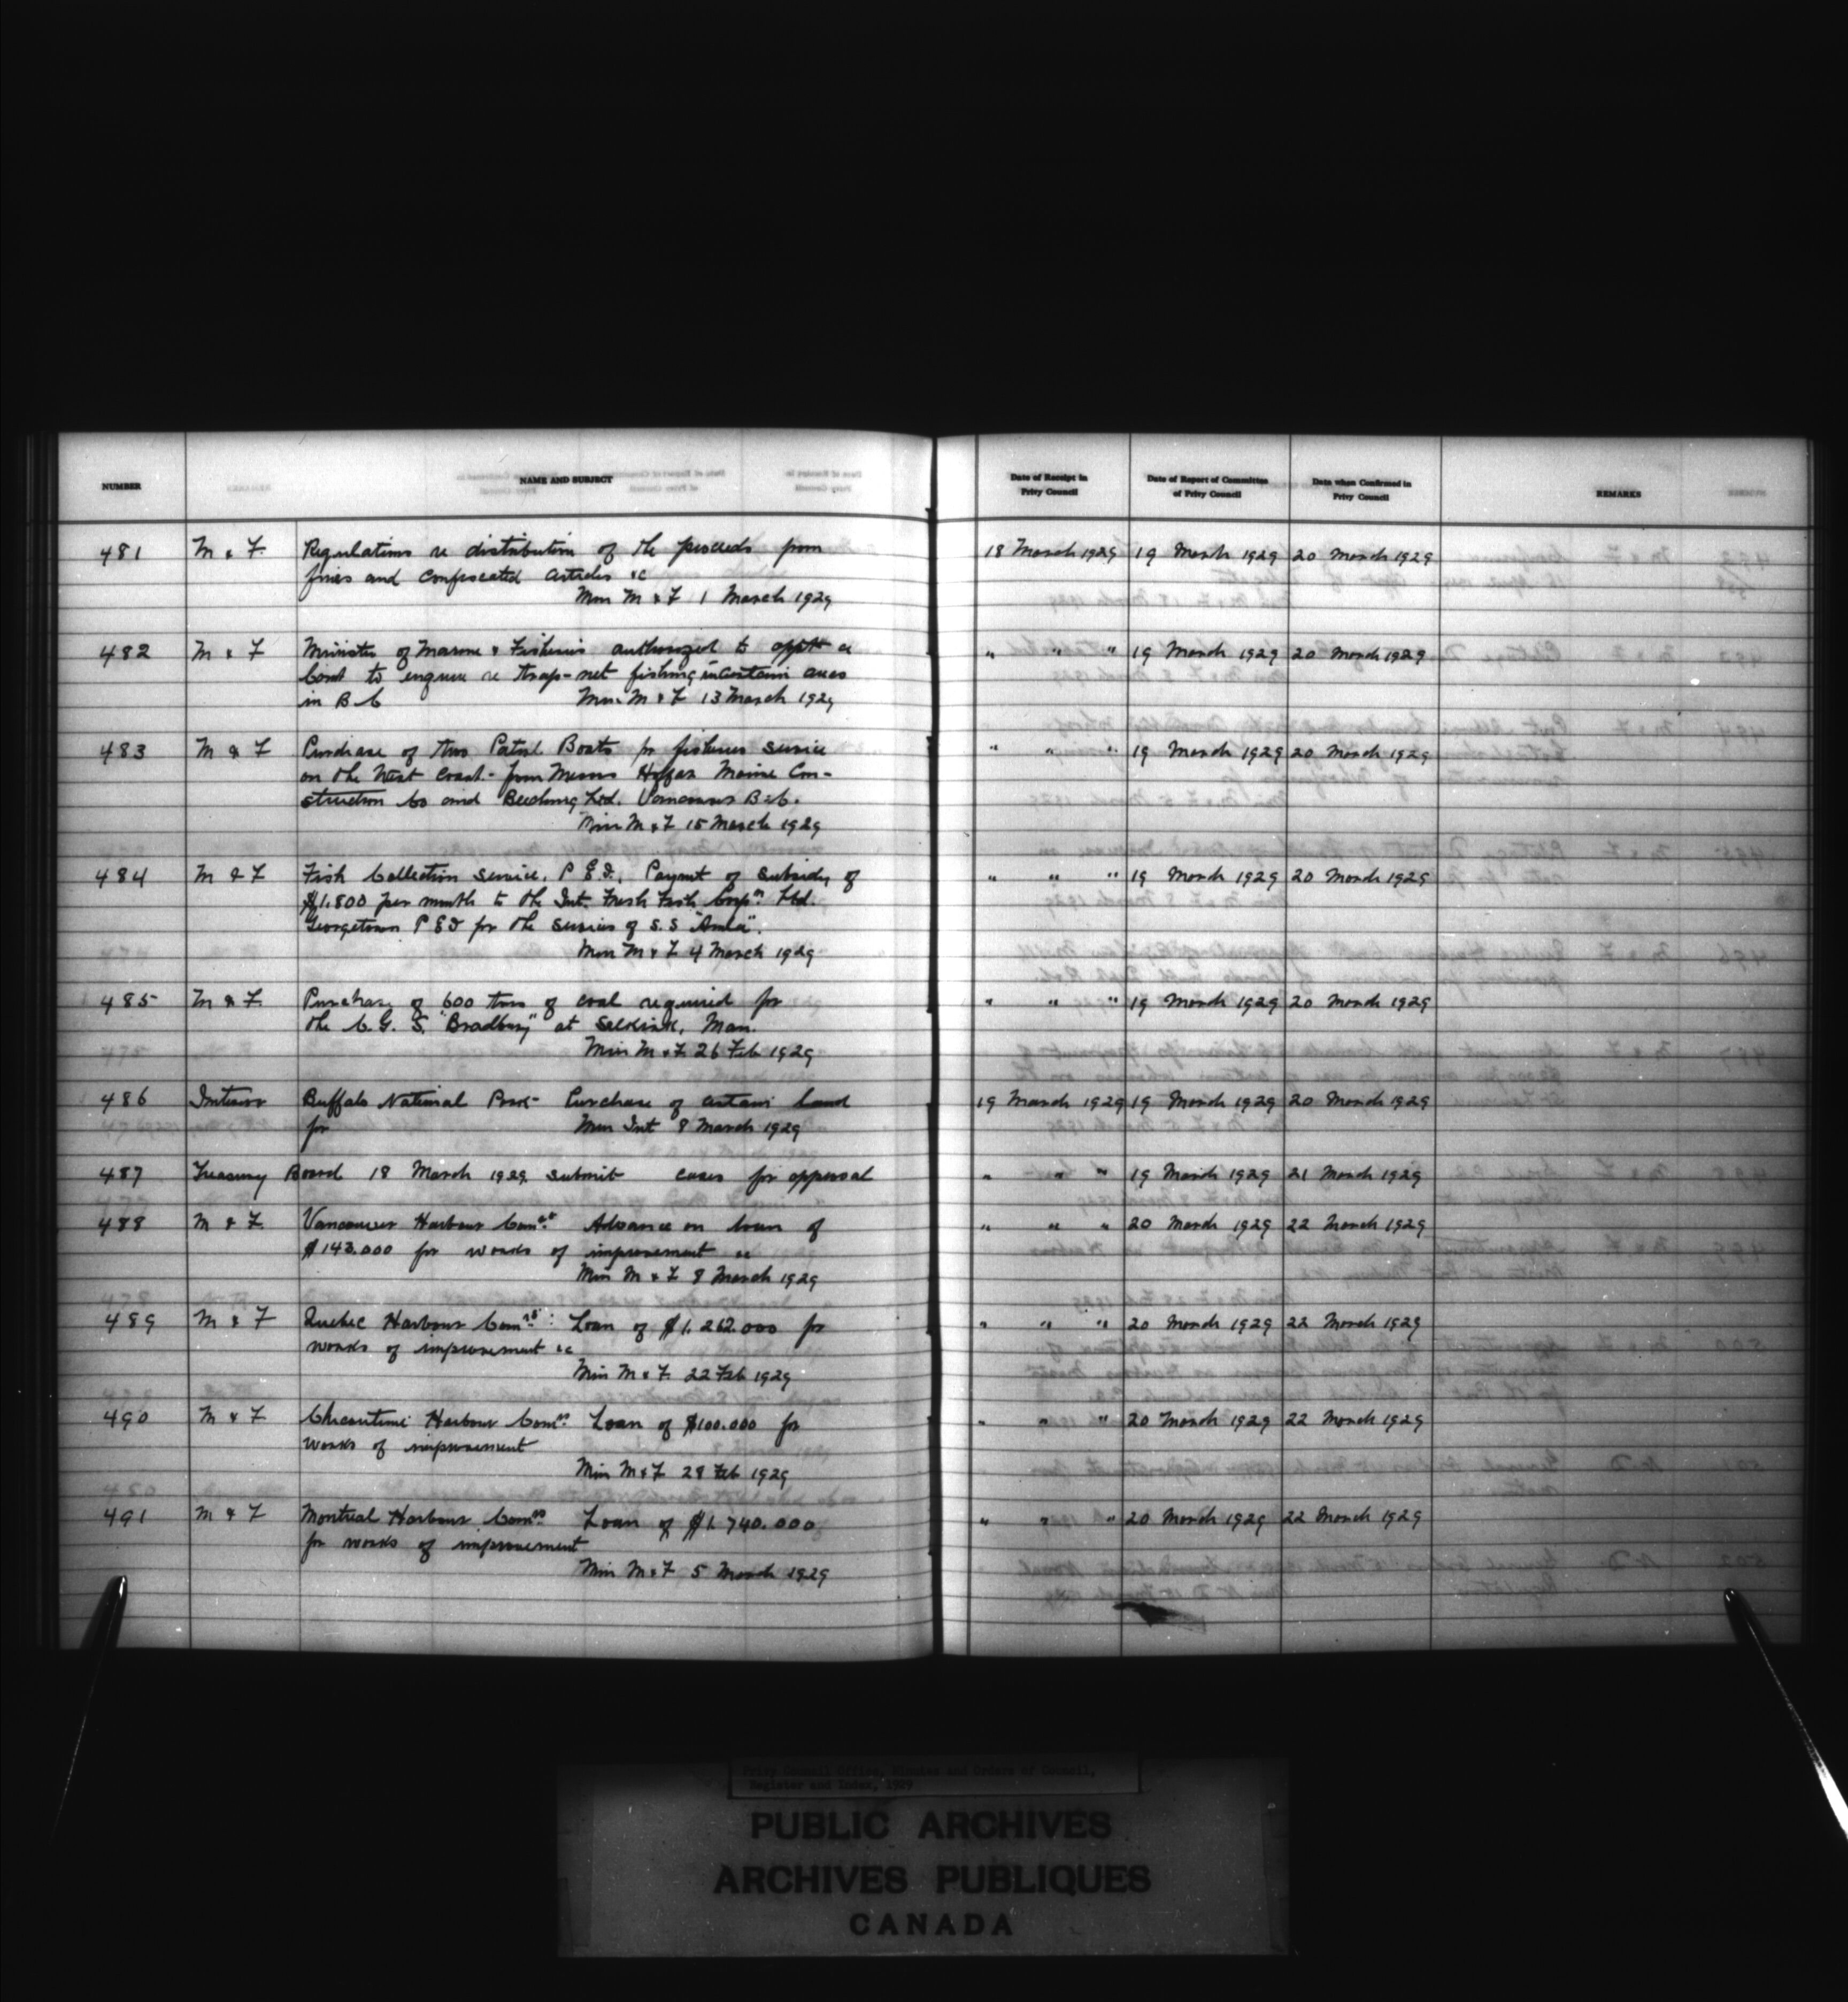 NUMBER NAME AND SUBJECT Date of Receipt in Privy Council Date of Report of Committee of Privy Council Date when Confirmed in Privy Council REMARKS
481 M & F. Regulations re distribution of the proceeds from 18 March 1929 19 March 1929 20 March 1929
fines and confiscated articles &c
Min M & F 1 March 1929
482 M & F Minister of Marine & Fisheries authorized to appt a " " " 19 March 1929 20 March 1929
to enquire re trap-net fishing in certain areas
in B C Min. M & F 13 March 1929
483 M & F Purchase of two Patrol Boats for fisheries service " " " 19 March 1929 20 March 1929
on the West Coast - from Messrs Hoffar Marine Con-
struction Co and Beeching Ltd. Vancouver B.C.
Min M & F 15 March 1929
484 M & F Fish Collection Service, P E I, Paymt of subsidy of " " " 19 March 1929 20 March 1929
$1.800 per month to the Int. Fresh Fish Corpn Ltd.
Georgetown P E I for the services of S.S
Min M & F 4 March 1929
485 M & F. Purchase of 600 tons of coal required for " " " 19 March 1929 20 March 1929
the C. G. S. "Bradbury" at Selkirk, Man.
Min M & F. 26 Feb 1929
486 Interior Buffalo National Park - Purchase of certain land 19 March 1929 19 March 1929 20 March 1929
for Min Int 8 March 1929
487 Treasury Board 18 March 1929 submit cases for approval " " " 19 March 1929 21 March 1929
488 M & F. Vancouver Harbour Comrs Advance on loan of " " " 20 March 1929 22 March 1929
$143.000 for works of improvement &c
Min M & F 8 March 1929
489 M & F Quebec Harbour Comrs: Loan of $1.262.000 for " " " 20 March 1929 22 March 1929
works of improvement &c
Min M & F. 22 Feb 1929
490 M & F Chicoutimi Harbour Comrs Loan of $100.000 for " " " 20 March 1929 22 March 1929
works of improvement
Min M & F 28 Feb 1929
491 M & F Montreal Harbour Comrs Loan of $1.740.000 " " " 20 March 1929 22 March 1929
for works of improvement
Min M & F 5 March 1929
Privy Council Office, Minutes and Orders of Council,
Register and Index, 1929
PUBLIC ARCHIVES
ARCHIVES PUBLIQUES
CANADA